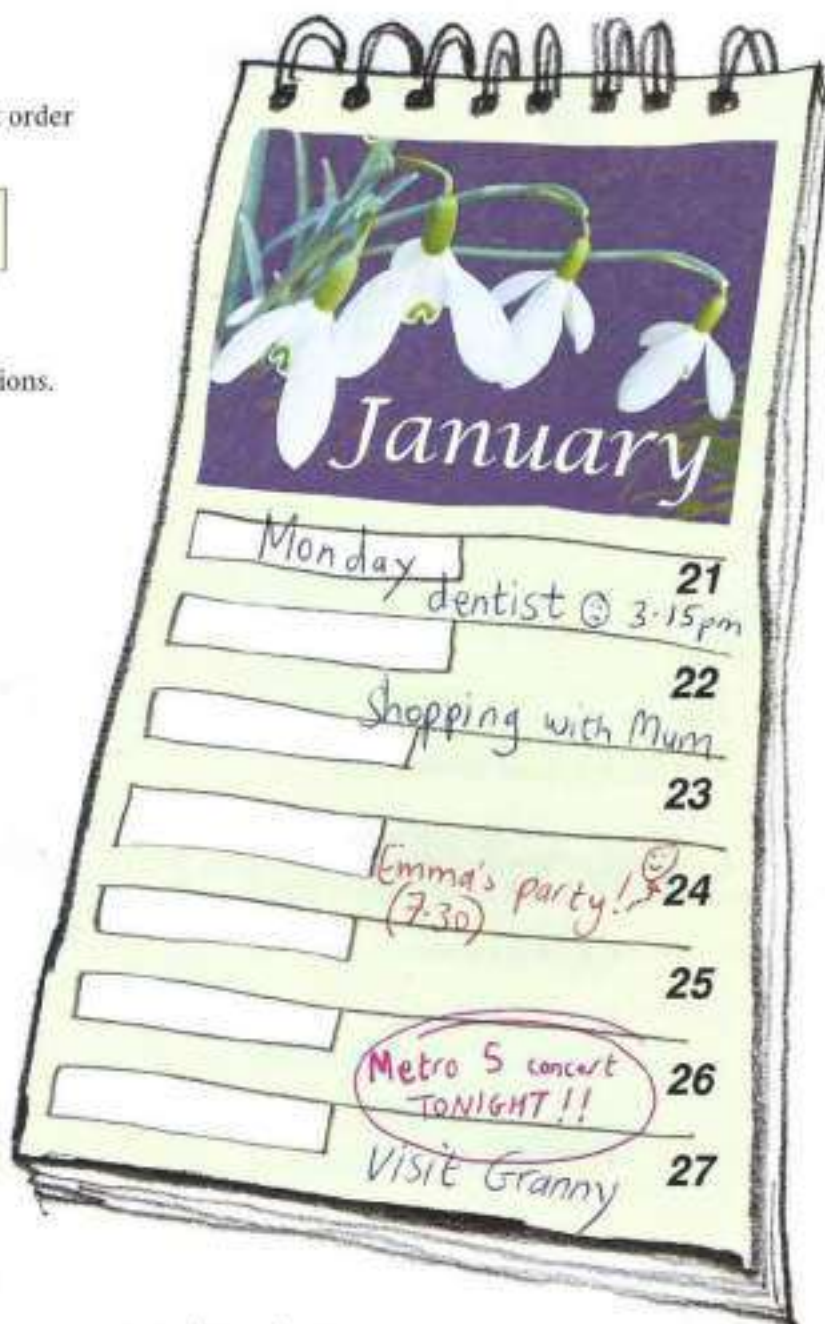 order
ions.
January
Monday
21
dentist 3.15pm
22
Shopping with Mum
23
Emma's party! 24
(7.30)
25
Metro 5 concert
TONIGHT!!
26
Visit Granny
27